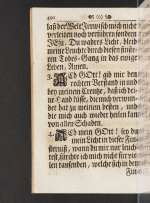 laß der Welt Irrwisch mich nicht
verleiten noch verführen sondern
JEsu, Du wahres Licht, bleib
meine Leuchte durch diesen finste-
ren Todes-Gang in das ewige
Leben, Amen.
3. Ach GOtt! gib mir den
rechten Verstand in und
bey meinem Creutze, daß ich dei-
ne Hand küsse, die mich verwun-
det hat zu meinem Besten, und
die mich auch wieder heilen
von allen Schaden.
4. Ach mein GOtt! sey du
mein Licht in dieser Fin-
sterniß, wenn du mir nur leuch-
test fürchte ich mich nicht für vie-
len tausenden, welche sich in der
Fin-